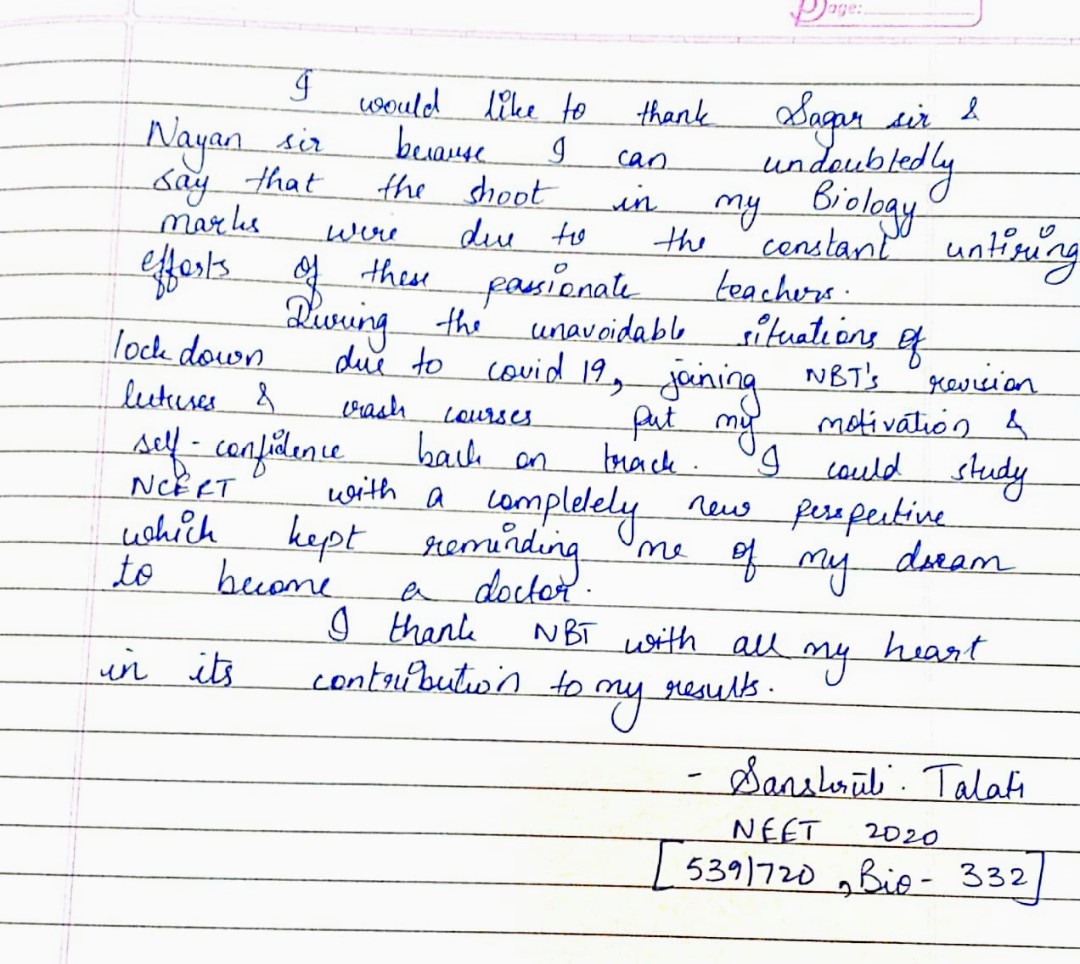 Page:
I would like to thank Sagar sir &
Nayan sir because I can undoubtedly
say that the shoot in my Biology
marks were due to the constant untiring
efforts of these passionate teachers.
During the unavoidable situations of
lockdown due to covid 19, joining NBT's revision
lectures & crash courses put my motivation &
self-confidence back on track. I could study
NCERT with a completely new perspective
which kept reminding me of my dream
to become a doctor.
I thank NBT with all my heart
in its contribution to my results.
- Sanskruti. Talati
NEET 2020
[539/720, Bio - 332]